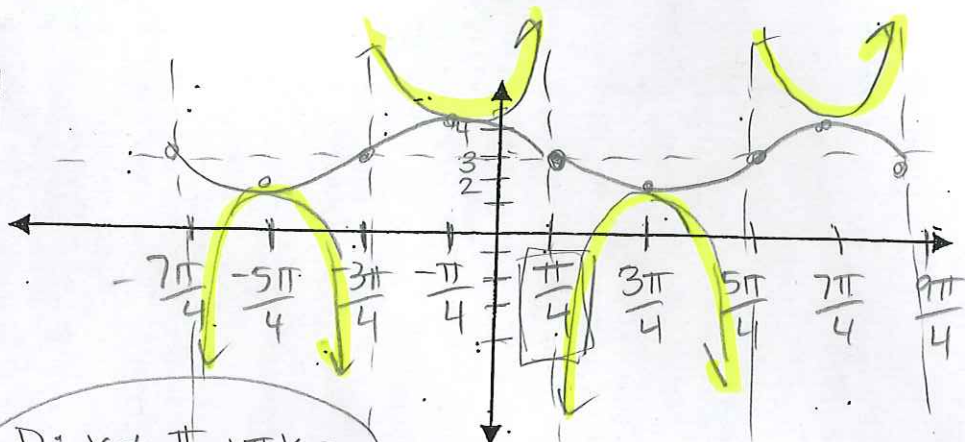 4
3
2
-7π/4 -5π/4 -3π/4 -π/4 π/4 3π/4 5π/4 7π/4 9π/4